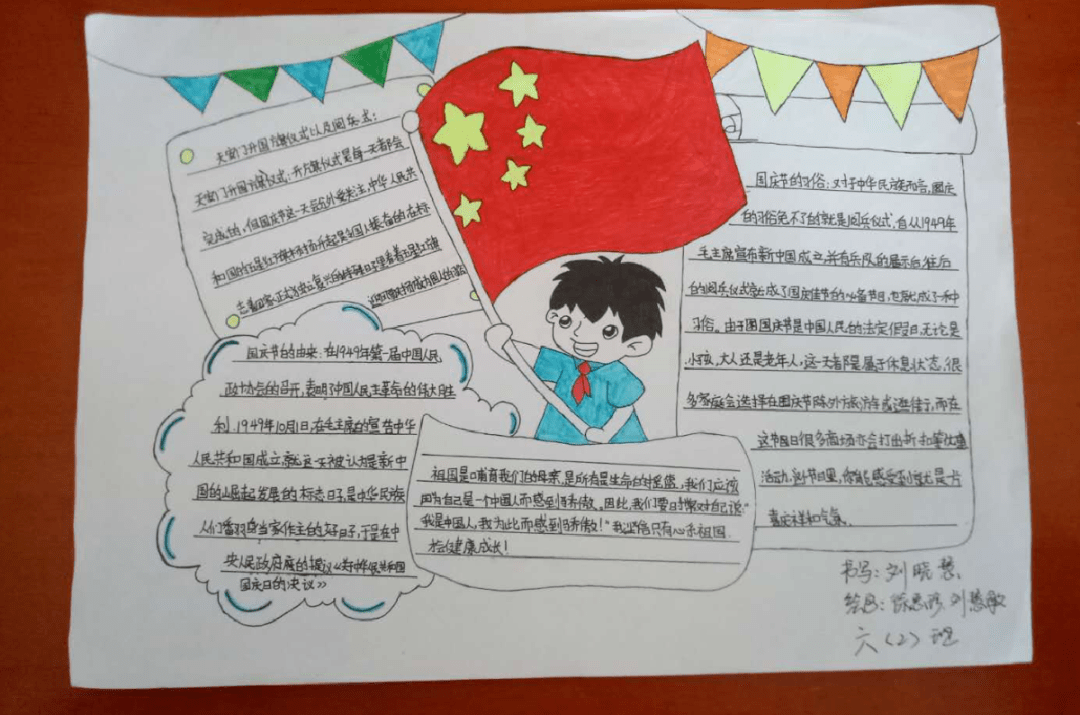 天安门升国旗仪式以及阅兵式：
天安门升国旗仪式：升旗仪式是每一天都会
完成的，但国庆节这一天后备受关注，中华人民共
和国的五星红旗冉冉升起是全国人振奋的在标
志着国家正式独立复兴的特殊日子里看着五星红旗
国庆节的由来：在1949年第一届中国人民
政计协会的召开，表明了中国人民主革命的伟大胜
利.1949年10月1日,在毛主席的宣告中华
人民共和国成立就这一天被认为是新中
国的山屈起发展的标志日子,是中华民族
人们番羽身当家作主的好日子,于是在中
央人民政府席的提议《关于中华人民共和国
国庆日的决议》
祖国是哺育我们的母亲,是所有是生命的摇篮，我们应该
因为自己是一个中国人而感到骄傲。因此,我们要日时常对自己说:"
我是中国人,我为此而感到骄傲！"我坚信只有心系祖国.
才会健康成长！
国庆节的习俗：对于中华民族而言,国庆
的习俗免不了的就是阅兵仪式,自从1949年
毛主席宣布新中国成立,并有兵队的展示后往后
的阅兵仪式就成了国庆佳节的必备节日,也就成了一种
习俗。由于国国庆节是中国人民的法定假日,无论是
小孩,大人还是老年人，这一天都是属于休息状态,很
多家庭会选择在国庆节除外旅游或逛街,而在
这节日很多商场亦会打出折扣等优惠
活动,
喜庆祥和气氛.
书写：刘晓慧.
刘慧敏
六（2）班